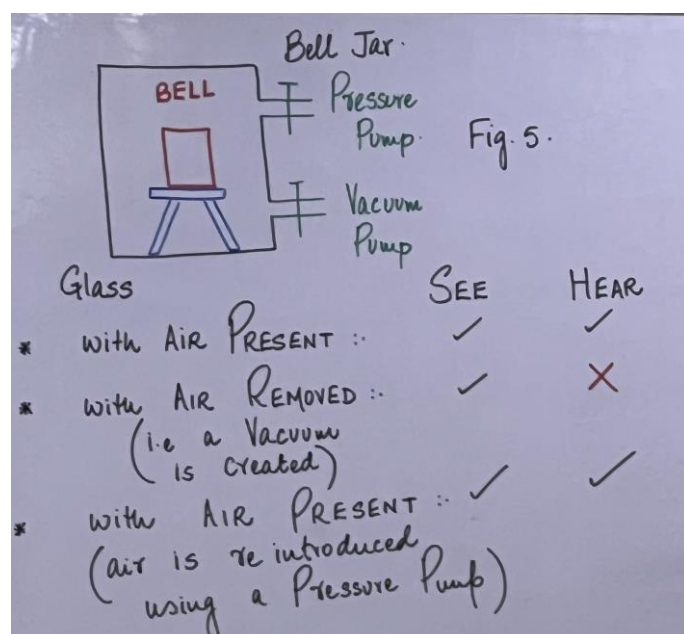 Bell Jar.
BELL
Pressure
Pump.
Fig. 5.
Vacuum
Pump
Glass
SEE HEAR
* with AIR PRESENT :- ✓ ✓
* with AIR REMOVED :- ✓ ✗
(i.e a Vacuum
is created)
* with AIR PRESENT :- ✓ ✓
(air is re introduced
using a Pressure Pump)